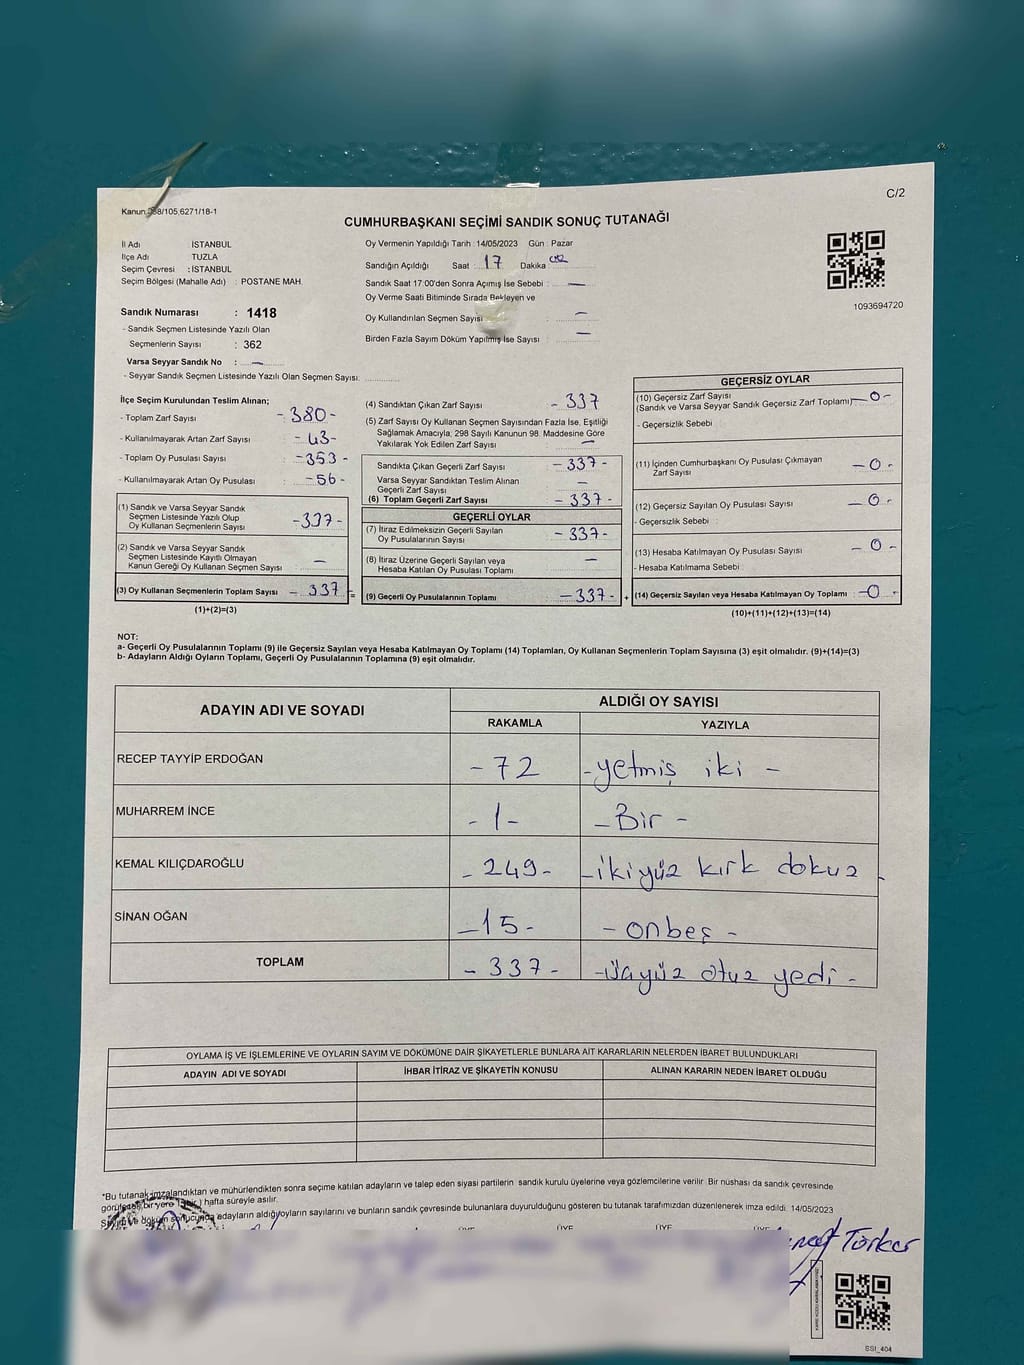 C/2
Kanun:298/105,6271/18-1
CUMHURBAŞKANI SEÇİMİ SANDIK SONUÇ TUTANAĞI
İl Adı : İSTANBUL
İlçe Adı : TUZLA
Seçim Çevresi : İSTANBUL
Seçim Bölgesi (Mahalle Adı) : POSTANE MAH.
Oy Vermenin Yapıldığı Tarih : 14/05/2023 Gün : Pazar
Sandığın Açıldığı Saat : 17 Dakika
Sandık Saat 17:00'den Sonra Açımış İse Sebebi : —
Oy Verme Saati Bitiminde Sırada Bekleyen ve
Oy Kullandırılan Seçmen Sayısı —
Birden Fazla Sayım Döküm Yapılmış İse Sayısı : —
1093694720
Sandık Numarası : 1418
- Sandık Seçmen Listesinde Yazılı Olan
Seçmenlerin Sayısı : 362
Varsa Seyyar Sandık No : —
- Seyyar Sandık Seçmen Listesinde Yazılı Olan Seçmen Sayısı:
İlçe Seçim Kurulundan Teslim Alınan;
- Toplam Zarf Sayısı - 380 -
- Kullanılmayarak Artan Zarf Sayısı - 43 -
- Toplam Oy Pusulası Sayısı - 353 -
- Kullanılmayarak Artan Oy Pusulası - 56 -
(1) Sandık ve Varsa Seyyar Sandık
Seçmen Listesinde Yazılı Olup
Oy Kullanan Seçmenlerin Sayısı - 337 -
(2) Sandık ve Varsa Seyyar Sandık
Seçmen Listesinde Kayıtlı Olmayan
Kanun Gereği Oy Kullanan Seçmen Sayısı —
(3) Oy Kullanan Seçmenlerin Toplam Sayısı - 337 - =
(1)+(2)=(3)
(4) Sandıktan Çıkan Zarf Sayısı - 337
(5) Zarf Sayısı Oy Kullanan Seçmen Sayısından Fazla İse, Eşitliği
Sağlamak Amacıyla, 298 Sayılı Kanunun 98. Maddesine Göre
Yakılarak Yok Edilen Zarf Sayısı —
Sandıkta Çıkan Geçerli Zarf Sayısı - 337 -
Varsa Seyyar Sandıktan Teslim Alınan
Geçerli Zarf Sayısı —
(6) Toplam Geçerli Zarf Sayısı - 337 -
GEÇERLİ OYLAR
(7) İtiraz Edilmeksizin Geçerli Sayılan
Oy Pusulalarının Sayısı - 337 -
(8) İtiraz Üzerine Geçerli Sayılan veya
Hesaba Katılan Oy Pusulası Toplamı —
(9) Geçerli Oy Pusulalarının Toplamı - 337 - +
GEÇERSİZ OYLAR
(10) Geçersiz Zarf Sayısı
(Sandık ve Varsa Seyyar Sandık Geçersiz Zarf Toplamı) - 0 -
- Geçersizlik Sebebi :
(11) İçinden Cumhurbaşkanı Oy Pusulası Çıkmayan
Zarf Sayısı - 0 -
(12) Geçersiz Sayılan Oy Pusulası Sayısı - 0 -
- Geçersizlik Sebebi :
(13) Hesaba Katılmayan Oy Pusulası Sayısı - 0 -
- Hesaba Katılmama Sebebi :
(14) Geçersiz Sayılan veya Hesaba Katılmayan Oy Toplamı : - 0 -
(10)+(11)+(12)+(13)=(14)
NOT:
a- Geçerli Oy Pusulalarının Toplamı (9) ile Geçersiz Sayılan veya Hesaba Katılmayan Oy Toplamı (14) Toplamları, Oy Kullanan Seçmenlerin Toplam Sayısına (3) eşit olmalıdır. (9)+(14)=(3)
b- Adayların Aldığı Oyların Toplamı, Geçerli Oy Pusulalarının Toplamına (9) eşit olmalıdır.
ADAYIN ADI VE SOYADI ALDIĞI OY SAYISI
RAKAMLA YAZIYLA
RECEP TAYYİP ERDOĞAN - 72 - yetmiş iki -
MUHARREM İNCE - 1 - - Bir -
KEMAL KILIÇDAROĞLU - 249 - - ikiyüz kırk dokuz -
SİNAN OĞAN - 15 - - onbeş -
TOPLAM - 337 - - üçyüz otuz yedi -
OYLAMA İŞ VE İŞLEMLERİNE VE OYLARIN SAYIM VE DÖKÜMÜNE DAİR ŞİKAYETLERLE BUNLARA AİT KARARLARIN NELERDEN İBARET BULUNDUKLARI
ADAYIN ADI VE SOYADI İHBAR İTİRAZ VE ŞİKAYETİN KONUSU ALINAN KARARIN NEDEN İBARET OLDUĞU
*Bu tutanak imzalandıktan ve mühürlendikten sonra seçime katılan adayların ve talep eden siyasi partilerin sandık kurulu üyelerine veya gözlemcilerine verilir. Bir nüshası da sandık çevresinde
görülecek bir yere 1 (bir) hafta süreyle asılır.
Sayım ve döküm sonucunda adayların aldığı oyların sayılarını ve bunların sandık çevresinde bulunanlara duyurulduğunu gösteren bu tutanak tarafımızdan düzenlenerek imza edildi. 14/05/2023
ÜYE ÜYE ÜYE ÜYE
Türker
SSI_404